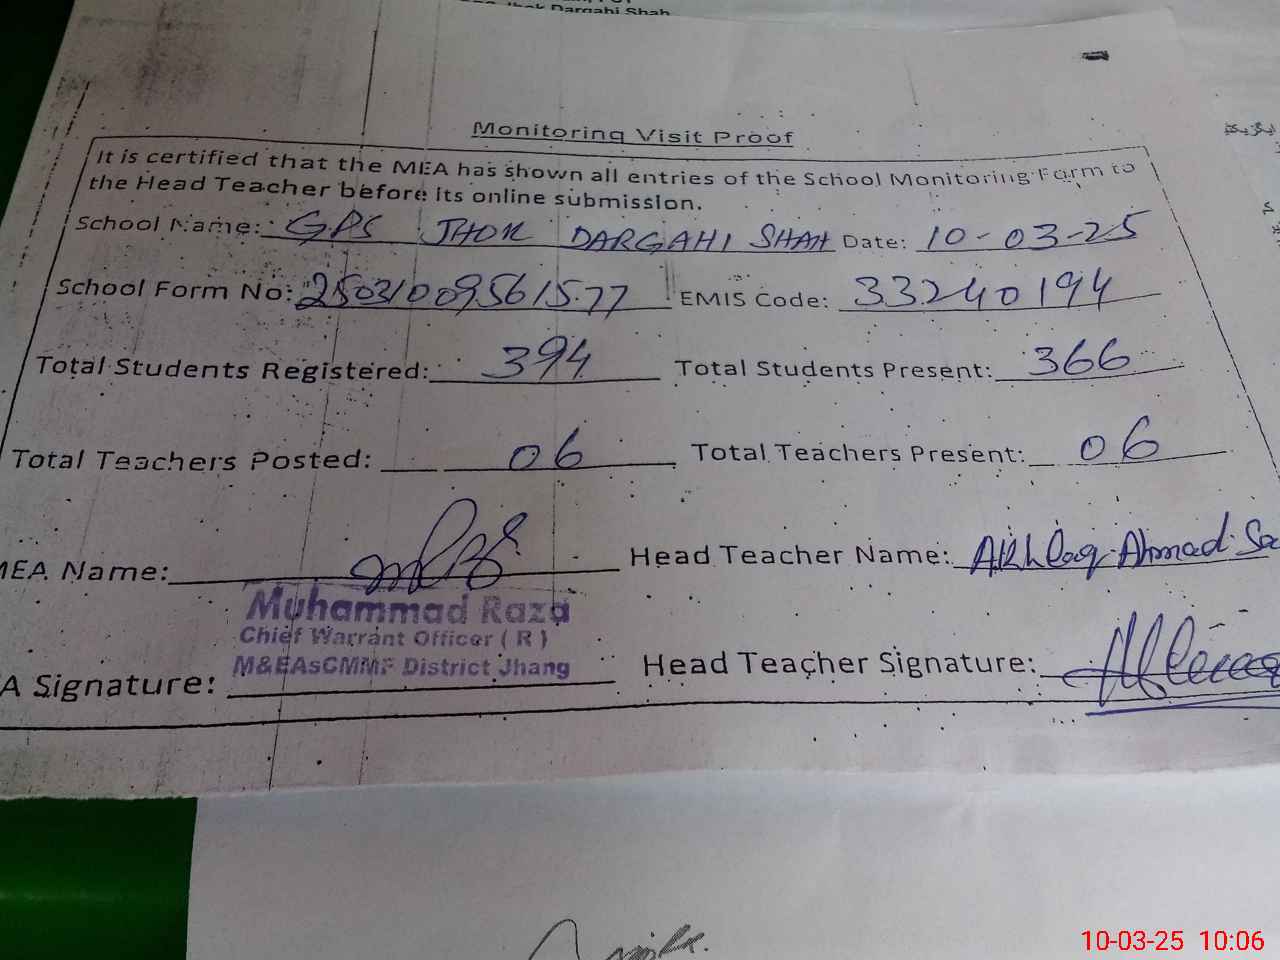 Jhok Dargahi Shah
Monitoring Visit Proof
It is certified that the MEA has shown all entries of the School Monitoring Form to
the Head Teacher before its online submission.
School Name: GPS JHOK DARGAHI SHAH Date: 10-03-25
School Form No: 25031009561577 EMIS Code: 33240194
Total Students Registered: 394 Total Students Present: 366
Total Teachers Posted: 06 Total Teachers Present: 06
MEA Name: Head Teacher Name: Akhlaq Ahmad
Muhammad Raza
Chief Warrant Officer ( R )
M&EAsCMMF District Jhang
A Signature: Head Teacher Signature:
10-03-25 10:06